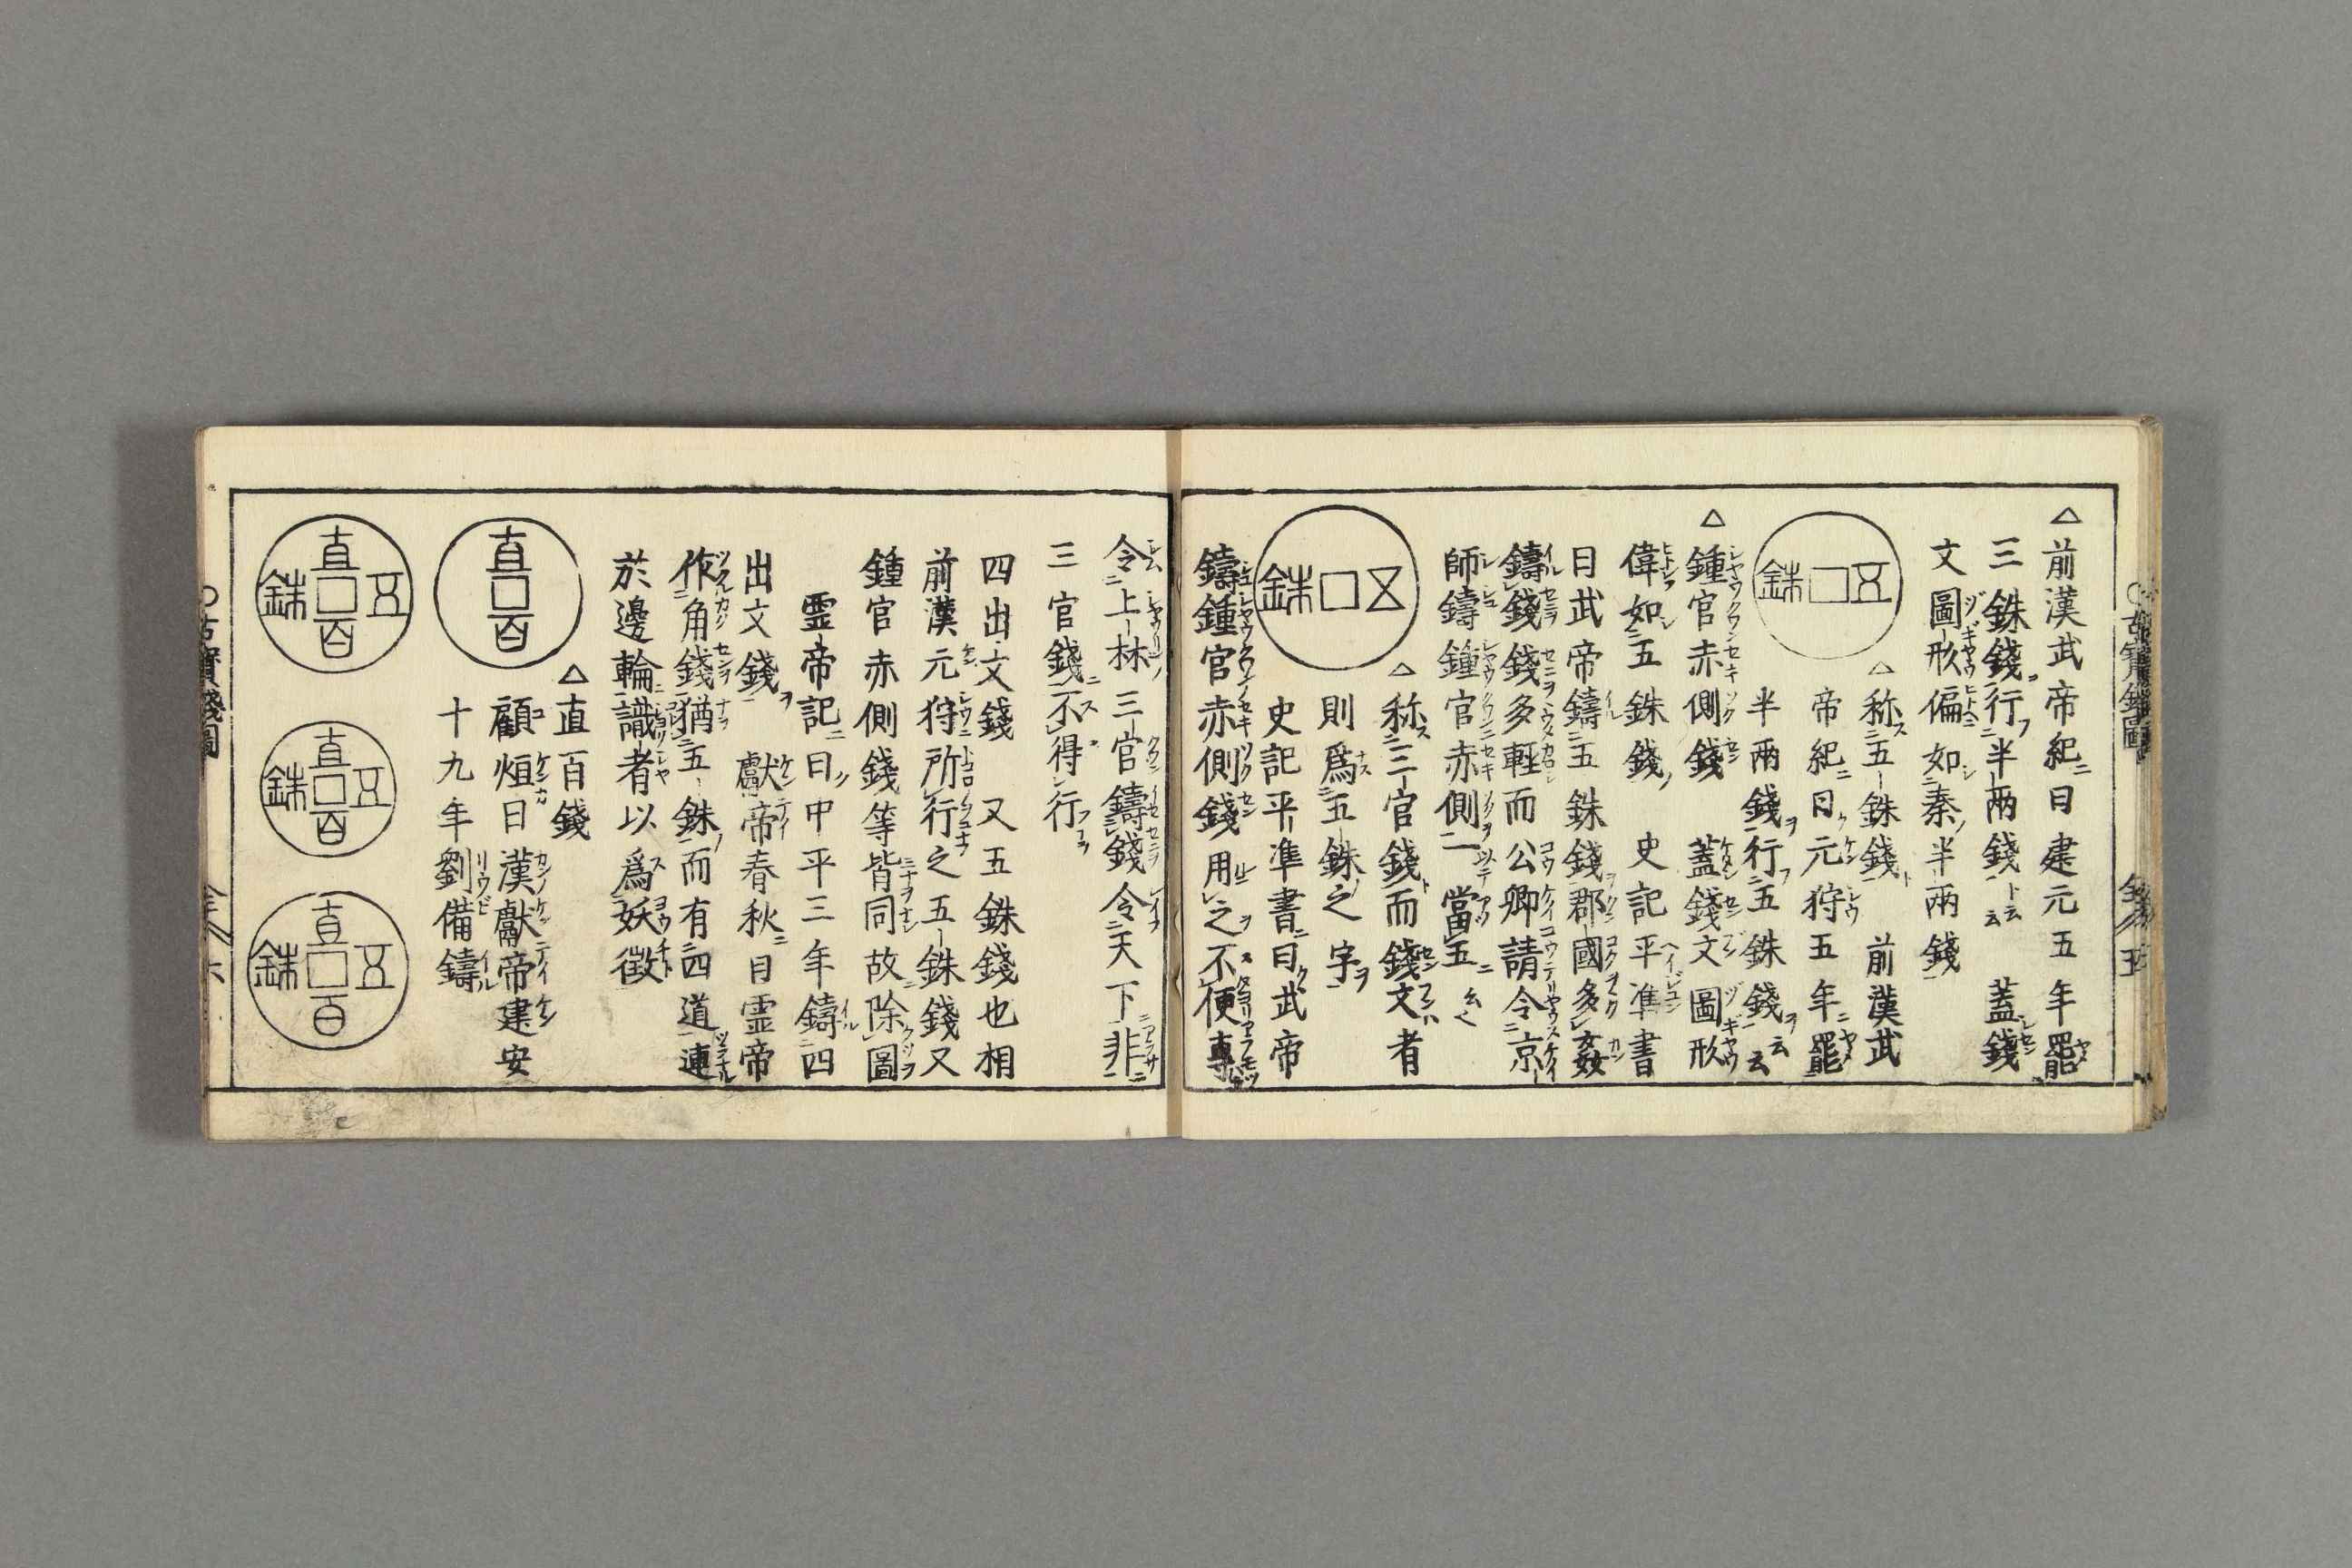 △前漢武帝紀ニ曰建元五年罷
三銖錢行半兩錢ト云云 蓋錢
文圖形偏如秦半兩錢
五銖
△称五銖錢ト 前漢武
帝紀ニ曰元狩五年罷
半兩錢ヲ行五銖錢ヲ云云
△鍾官赤側錢 蓋錢文圖形
偉如五銖錢 史記平準書
曰武帝鑄五銖錢郡國多姦
鑄錢錢多輕而公卿請令京
師鑄鍾官赤側一當五云云
五銖
△称三官錢ト而錢文者
則爲五銖之字ヲ
史記平準書ニ曰武帝
鑄鍾官赤側錢用之不便專
令上林三官鑄錢令天下非
三官錢不得行
四出文錢 又五銖錢也相
前漢元狩所行之五銖錢又
鍾官赤側錢等皆同故除圖
霊帝記ニ曰中平三年鑄四
出文錢ヲ 獻帝春秋ニ曰霊帝
作角錢猶五銖而有四道連
於邊輪識者以爲妖徴
△直百錢
直百
顧烜曰漢獻帝建安
十九年劉備鑄
直百五銖
直百五銖
直百五銖